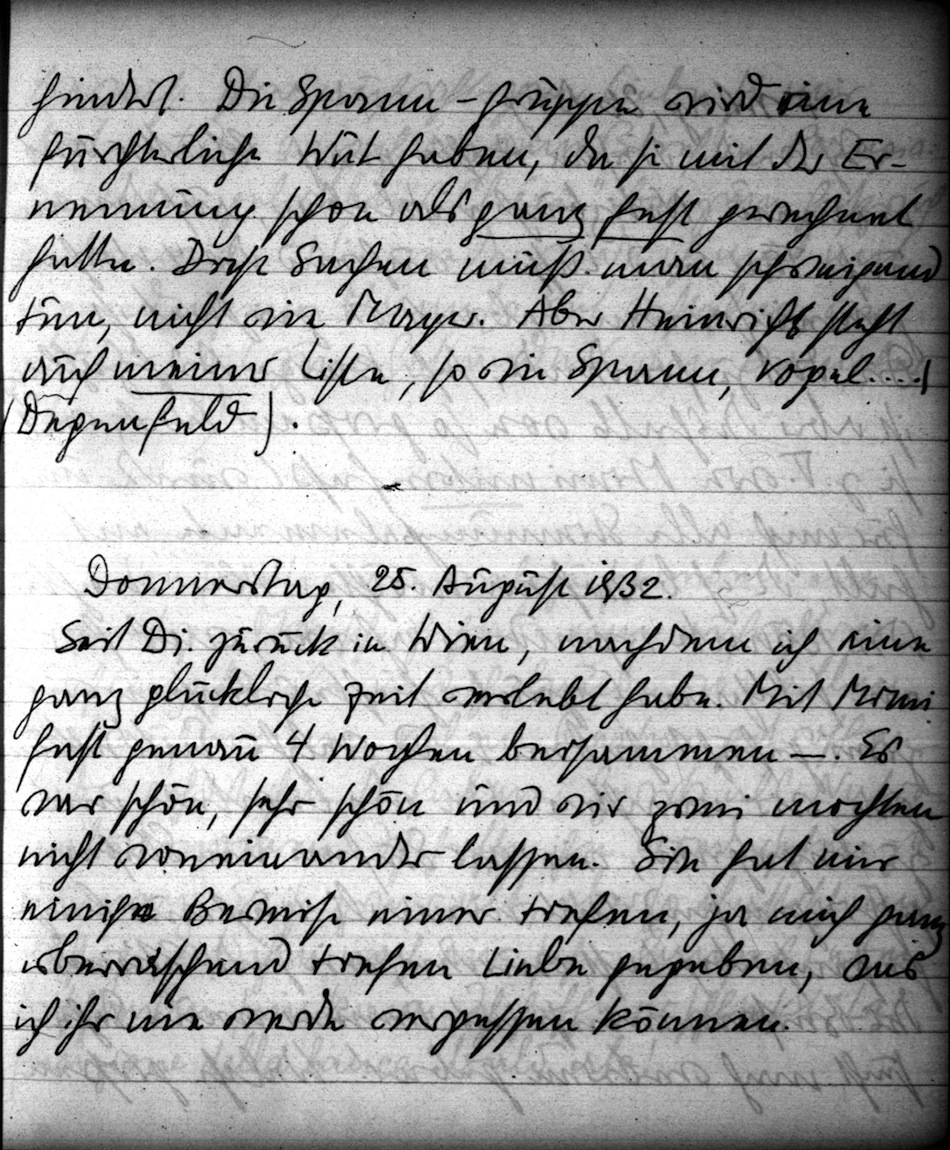 findet. Die Spann-Gruppe wird eine
fürchterliche Wut haben, da sie mit der Er-
nennung schon als ganz fest gerechnet
hatte. Diese Sachen muß man schweigend
tun, nicht wie Mayer. Aber Heinrich steht
auf meiner Liste, so wie Spann, Vogel....
(Degenfeld).
Donnerstag, 25. August 1932.
Seit Di. zurück in Wien, nachdem ich eine
ganz glückliche Zeit verlebt habe. Mit Mimi
fast genau 4 Wochen beisammen —. Es
war schön, sehr schön und wir zwei mochten
nicht voneinander lassen. Sie hat mir
einige Beweise einer tiefen, ja mich ganz
überraschend tiefen Liebe gegeben, was
ich ihr nie werde vergessen können.